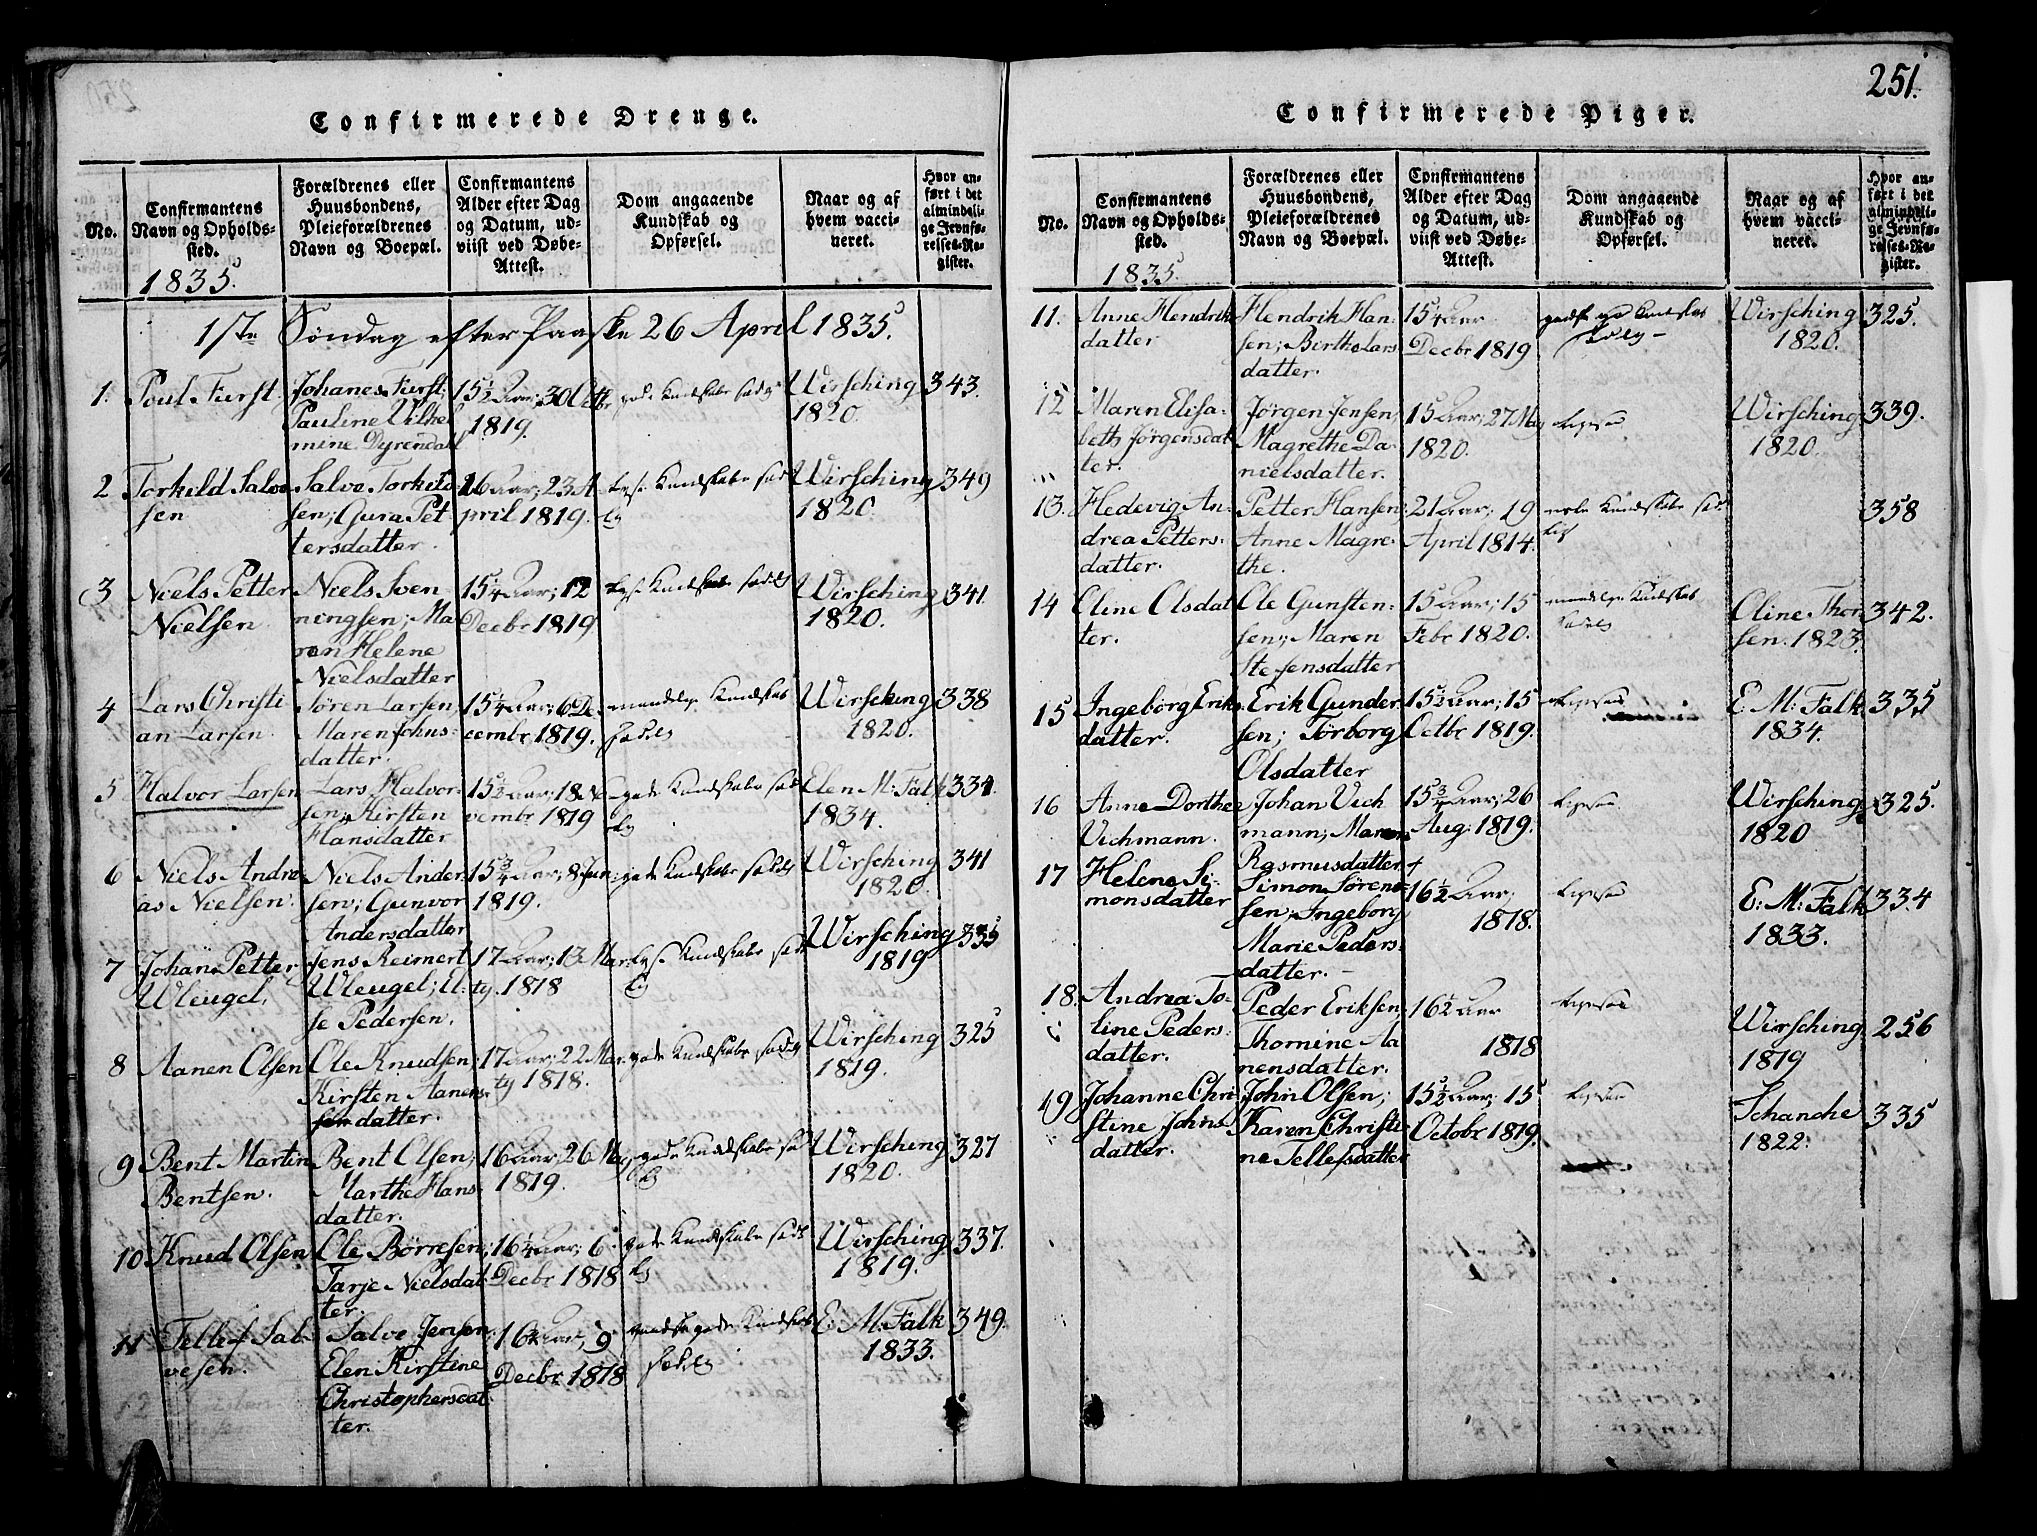 Confirmerede Drenge.
No.
Confirmantens
Navn og Opholds-
sted.
1835.
Forældrenes eller
Huusbondens,
Pleieforældrenes
Navn og Boepæl.
Confirmantens
Alder efter Dag
og Datum, ud-
viist ved Døbe-
Attest.
Dom angaaende
Kundskab og
Opførsel.
Naar og af
hvem vacci-
neret.
Hvor an-
ført i det
almindeli-
ge Jevnfø-
relses-Re-
gister.
1ste Søndag efter Paaske 26 April 1835.
1. Poul Fürst
Johanes Fürst;
Pauline Vilhel
mine Dyrendall
15 1/2 Aar; 30 Octbr
1819.
gode Kundskaber sædelig
Wirsching
1820.
343.
2 Torkild Salve
sen
Salve Torkild
sen; Gura Pet
tersdatter.
16 Aar; 23 A
pril 1819.
Kundskaber sæde
lig
Wirsching
1820.
349
3 Niels Petter
Nielsen
Niels Sven
ningsen; Ma
ren Helene
Nielsdatter
15 1/4 Aar; 12
Decbr 1819
Kundskaber sædelig
Wirsching
1820.
341.
4 Lars Christi
an Larsen.
Søren Larsen,
Maren Johns-
datter.
15 1/4 Aar; 6 De
cembr 1819.
Kundskab
sædelig
Wirsching
1820.
338
5 Halvor Larsen
Lars Halvor-
sen; Kirsten
Hansdatter
15 1/2 Aar; 18 No
vembr 1819
gode Kundskaber sæde
lig
Elen M: Falk
1834.
334.
6 Niels Andre
as Nielsen.
Niels Ander-
sen; Gunvor
Andersdatter
15 3/4 Aar; 8 Jun:
1819.
gode Kundskaber sædelig
Wirsching
1820.
341
7 Johan Petter
Wleugel,
Jens Reimert
Wleugel; El-
se Pedersen.
17 Aar; 13 Mar-
ty. 1818
Kundskaber sæde
lig
Wirsching
1819
335
8 Aanen Olsen
Ole Knudsen;
Kirsten Aanen-
datter.
17 Aar; 22 Mar-
ty 1818.
gode Kundskaber sædelig
Wirsching
1819.
325
9 Bent Martin
Bentsen.
Bent Olsen,
Marthe Hans-
datter.
16 Aar; 26 May
1819.
gode Kundskaber sæde
lig
Wirsching
1820.
327
10 Knud Olsen
Ole Børresen;
Tarje Nielsdat
ter.
16 1/4 Aar; 6
Decbr 1818
gode Kundskaber sæde
lig
Wirsching
1819.
337.
11 Tellef Sal-
vesen.
Salve Jensen
Elen Kirstine
Christophersdat
ter.
16 1/4 Aar, 9
Decbr 1818
gode Kundskab
sædelig
E: M: Falk
1833.
349.
251.
Confirmerede Piger.
No.
Confirmantens
Navn og Opholds-
sted.
1835.
Forældrenes eller
Huusbondens,
Pleieforældrenes
Navn og Boepæl.
Confirmantens
Alder efter Dag
og Datum, ud-
viist ved Døbe-
Attest.
Dom angaaende
Kundskab og
Opførsel.
Naar og af
hvem vacci-
neret.
Hvor an-
ført i det
almindeli-
ge Jevnfø-
relses-Re-
gister.
11. Anne Hendrik
datter
Hendrik Han-
sen; Birthe Lars
datter.
15 1/4 Aar
Decbr 1819
Wirsching
1820.
325.
12 Maren Elisa-
beth Jørgensdat
ter.
Jørgen Jensen,
Magrethe Da-
nielsdatter.
15 Aar; 27 May
1820.
ligesaa
Wirsching
1820.
339.
13. Hedevig An-
drea Petters-
datter.
Petter Hansen;
Anne Magre-
the.
21 Aar; 19
April 1814.
Kundskaber sæde
lig
358
14 Oline Olsdat
ter.
Ole Gunsten-
sen; Maren
Stefensdatter
15 Aar; 15
Febr 1820.
Kundskab
sædelig
Oline Thor
sen. 1823.
342.
15 Ingeborg Eriks
datter.
Erik Gunder
sen; Torborg
Olsdatter
15 1/2 Aar; 15
Octbr 1819.
ligesaa
E. M: Falk
1834.
335
16 Anne Dorthe
Vichmann.
Johan Vich
mann; Maren
Rasmusdatter
15 3/4 Aar; 26
Aug: 1819.
ligesaa
Wirsching
1820
325.
17 Helene Si-
monsdatter
Simon Søren-
sen, Ingeborg
Marie Peders-
datter.
16 1/2 Aar;
1818.
ligesaa
E: M: Falk
1833.
334
18. Andrea To-
line Peders-
datter.
Peder Eriksen,
Thomine Aa
nensdatter.
16 1/2 Aar
1818
ligesaa
Wirsching
1819
256
19 Johanne Chri
stine Johns-
datter.
John Olsen;
Karen Christi-
ne Tellefsdatter
15 1/2 Aar; 15
Octobr 1819.
ligesaa
Schanche
1822.
335